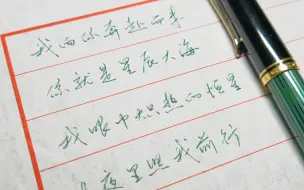 我向你奔赴而来
你就是星辰大海
我眼中炽热的恒星
长夜里照我前行